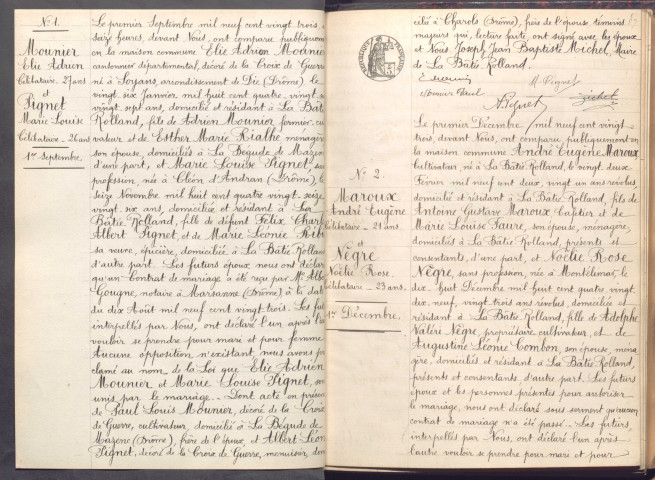 N° 1.
Mounier
Elie Adrien
Célibataire - 27 ans
et
Pignet
Marie Louise
Célibataire - 26 ans
1er Septembre.
Le premier Septembre mil neuf cent vingt trois, à
seize heures, devant Nous, ont comparu publiquement
en la maison commune Elie Adrien Mounier
cantonnier départemental, décoré de la Croix de Guerre
né à Soyans, arrondissement de Die (Drôme) le
vingt six Janvier mil huit cent quatre vingt
vingt sept ans, domicilié et résidant à La Bâtie
Rolland, fils de Adrien Mounier fermier, cul
vateur et de Esther Marie Rialhe ménagère
son épouse, domiciliés à La Bégude de Mazenc
d'une part, et Marie Louise Pignet, sans
profession, née à Cléon d'Andran (Drôme), le
seize Novembre mil huit cent quatre vingt seize
vingt six ans, domiciliée et résidant à La
Bâtie Rolland, fille de défunt Félix Charles
Albert Pignet et de Marie Léonie Ribi
sa veuve, épicière, domiciliée à La Bâtie Rolland
d'autre part. Les futurs époux nous ont déclaré
qu'un Contrat de mariage a été reçu par Me Albe
Gougne, notaire à Marsanne (Drôme) à la date
du dix Août mil neuf cent vingt trois. Les futurs
interpellés par Nous, ont déclaré l'un après l'au
vouloir se prendre pour mari et pour femme
Aucune opposition n'existant, nous avons pro
clamé au nom de la Loi que Elie Adrien
Mounier et Marie Louise Pignet, sont
unis par le mariage. - Dont acte en présence
de Paul Louis Mounier, décoré de la Croix
de Guerre, cultivateur, domicilié à La Bégude de
Mazenc (Drôme), frère de l'époux, et Albert Léon
Pignet, décoré de la Croix de Guerre, menuisier, dom
cilié à Charols (Drôme), frère de l'épouse, témoins
majeurs qui, lecture faite, ont signé avec les époux
et Nous Joseph Jean Baptiste Michel, Maire
de La Bâtie Rolland.
E. Mounier
M. Pignet
Mounier Paul
A. Pignet
Michel
N° 2.
Maroux
André Eugène
Célibataire - 21 ans.
et
Nègre
Noëlie Rose.
Célibataire - 23 ans.
1er Décembre.
Le premier Décembre mil neuf cent vingt-
trois, devant Nous, ont comparu publiquement en
la maison commune André Eugène Maroux
cultivateur, né à La Bâtie Rolland, le vingt deux
Février mil neuf cent deux, vingt un ans révolus
domicilié et résidant à La Bâtie Rolland, fils de
Antoine Gustave Maroux Cafetier et de
Marie Louise Faure, son épouse, ménagère,
domiciliés à La Bâtie Rolland, présents et
consentants, d'une part, et Noëlie Rose
Nègre, sans profession, née à Montélimar, le
dix huit Décembre mil huit cent quatre vingt
dix neuf, vingt trois ans révolus, domiciliée et
résidant à La Bâtie Rolland, fille de Adolphe
Valéri Nègre, propriétaire cultivateur, et de
Augustine Léonie Combon, son épouse, ména
gère, domiciliés et résidant à La Bâtie Rolland,
présents et consentants, d'autre part. Les futurs
époux et les personnes présentes pour autoriser
le mariage, nous ont déclaré sous serment qu'aucun
contrat de mariage n'a été passé. - Les futurs,
interpellés par Nous, ont déclaré l'un après
l'autre vouloir se prendre pour mari et pour